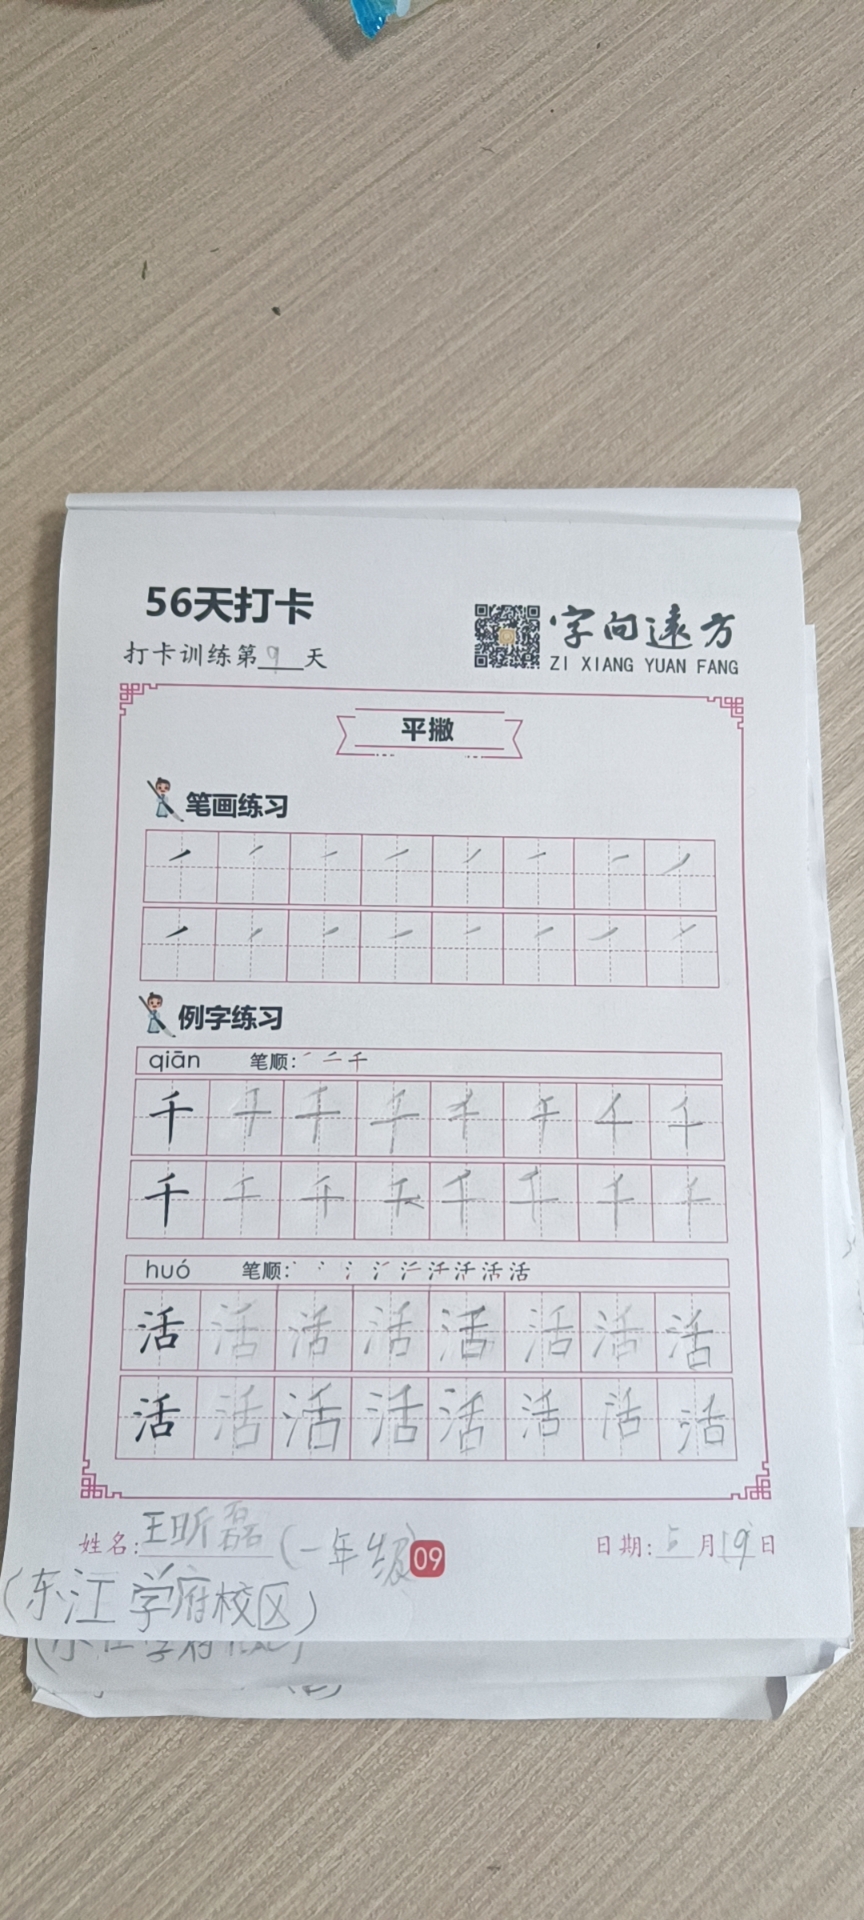 56天打卡
打卡训练第9天
字向远方
ZI XIANG YUAN FANG
平撇
笔画练习
例字练习
qiān 笔顺:
千 千 千 千 千 千 千 千
千 千 千 千 千 千 千 千
huó 笔顺:
活 活 活 活 活 活 活 活
活 活 活 活 活 活 活 活
姓名:王昕磊(一年级) 09 日期:5月19日
(东江学府校区)